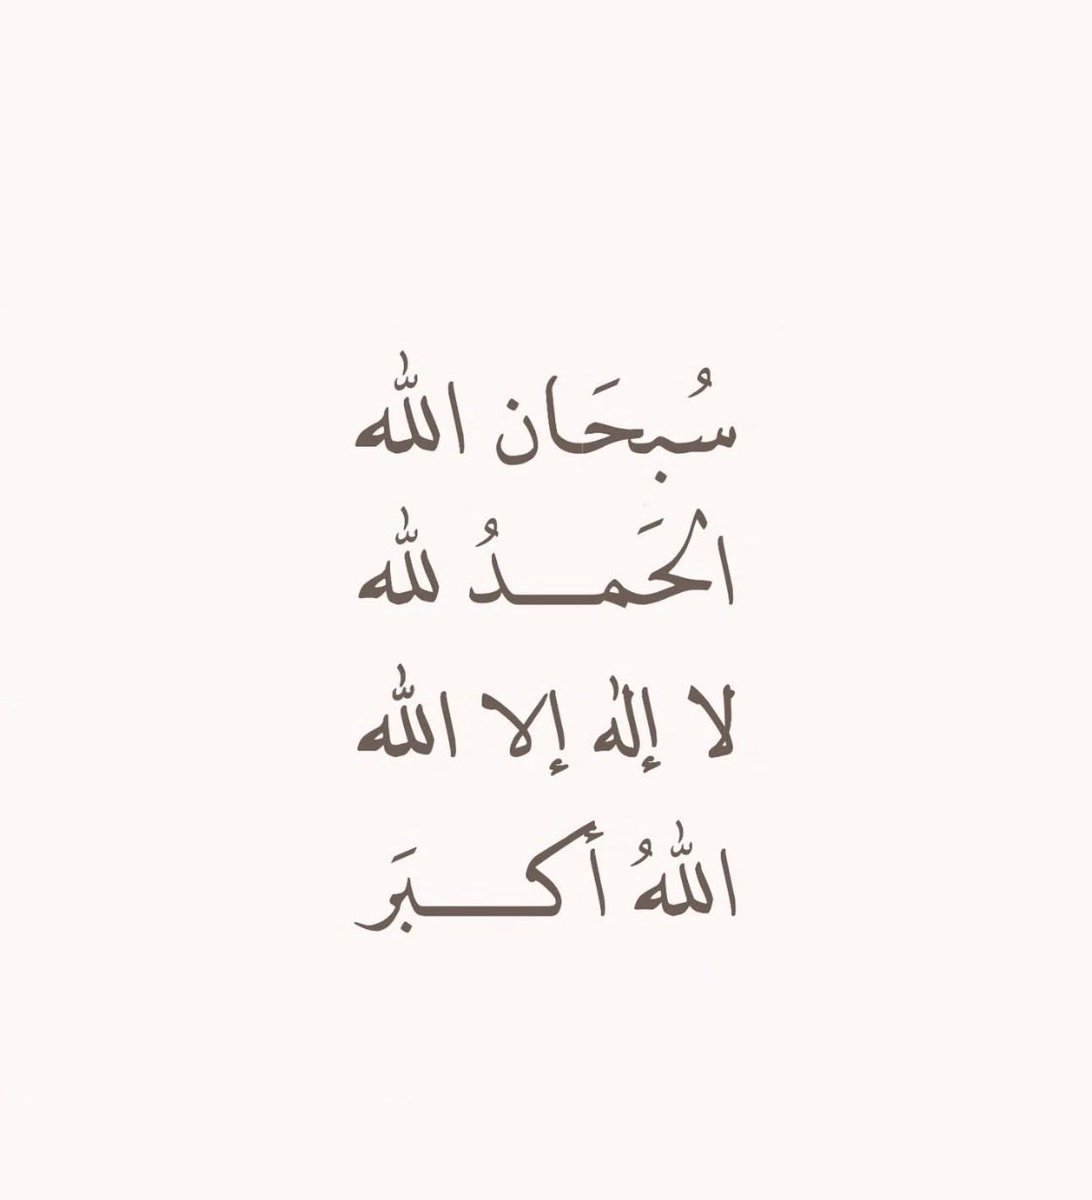 سُبحَان الله
الحَمـــدُ لله
لا إله إلا الله
اللهُ أكـــبَر